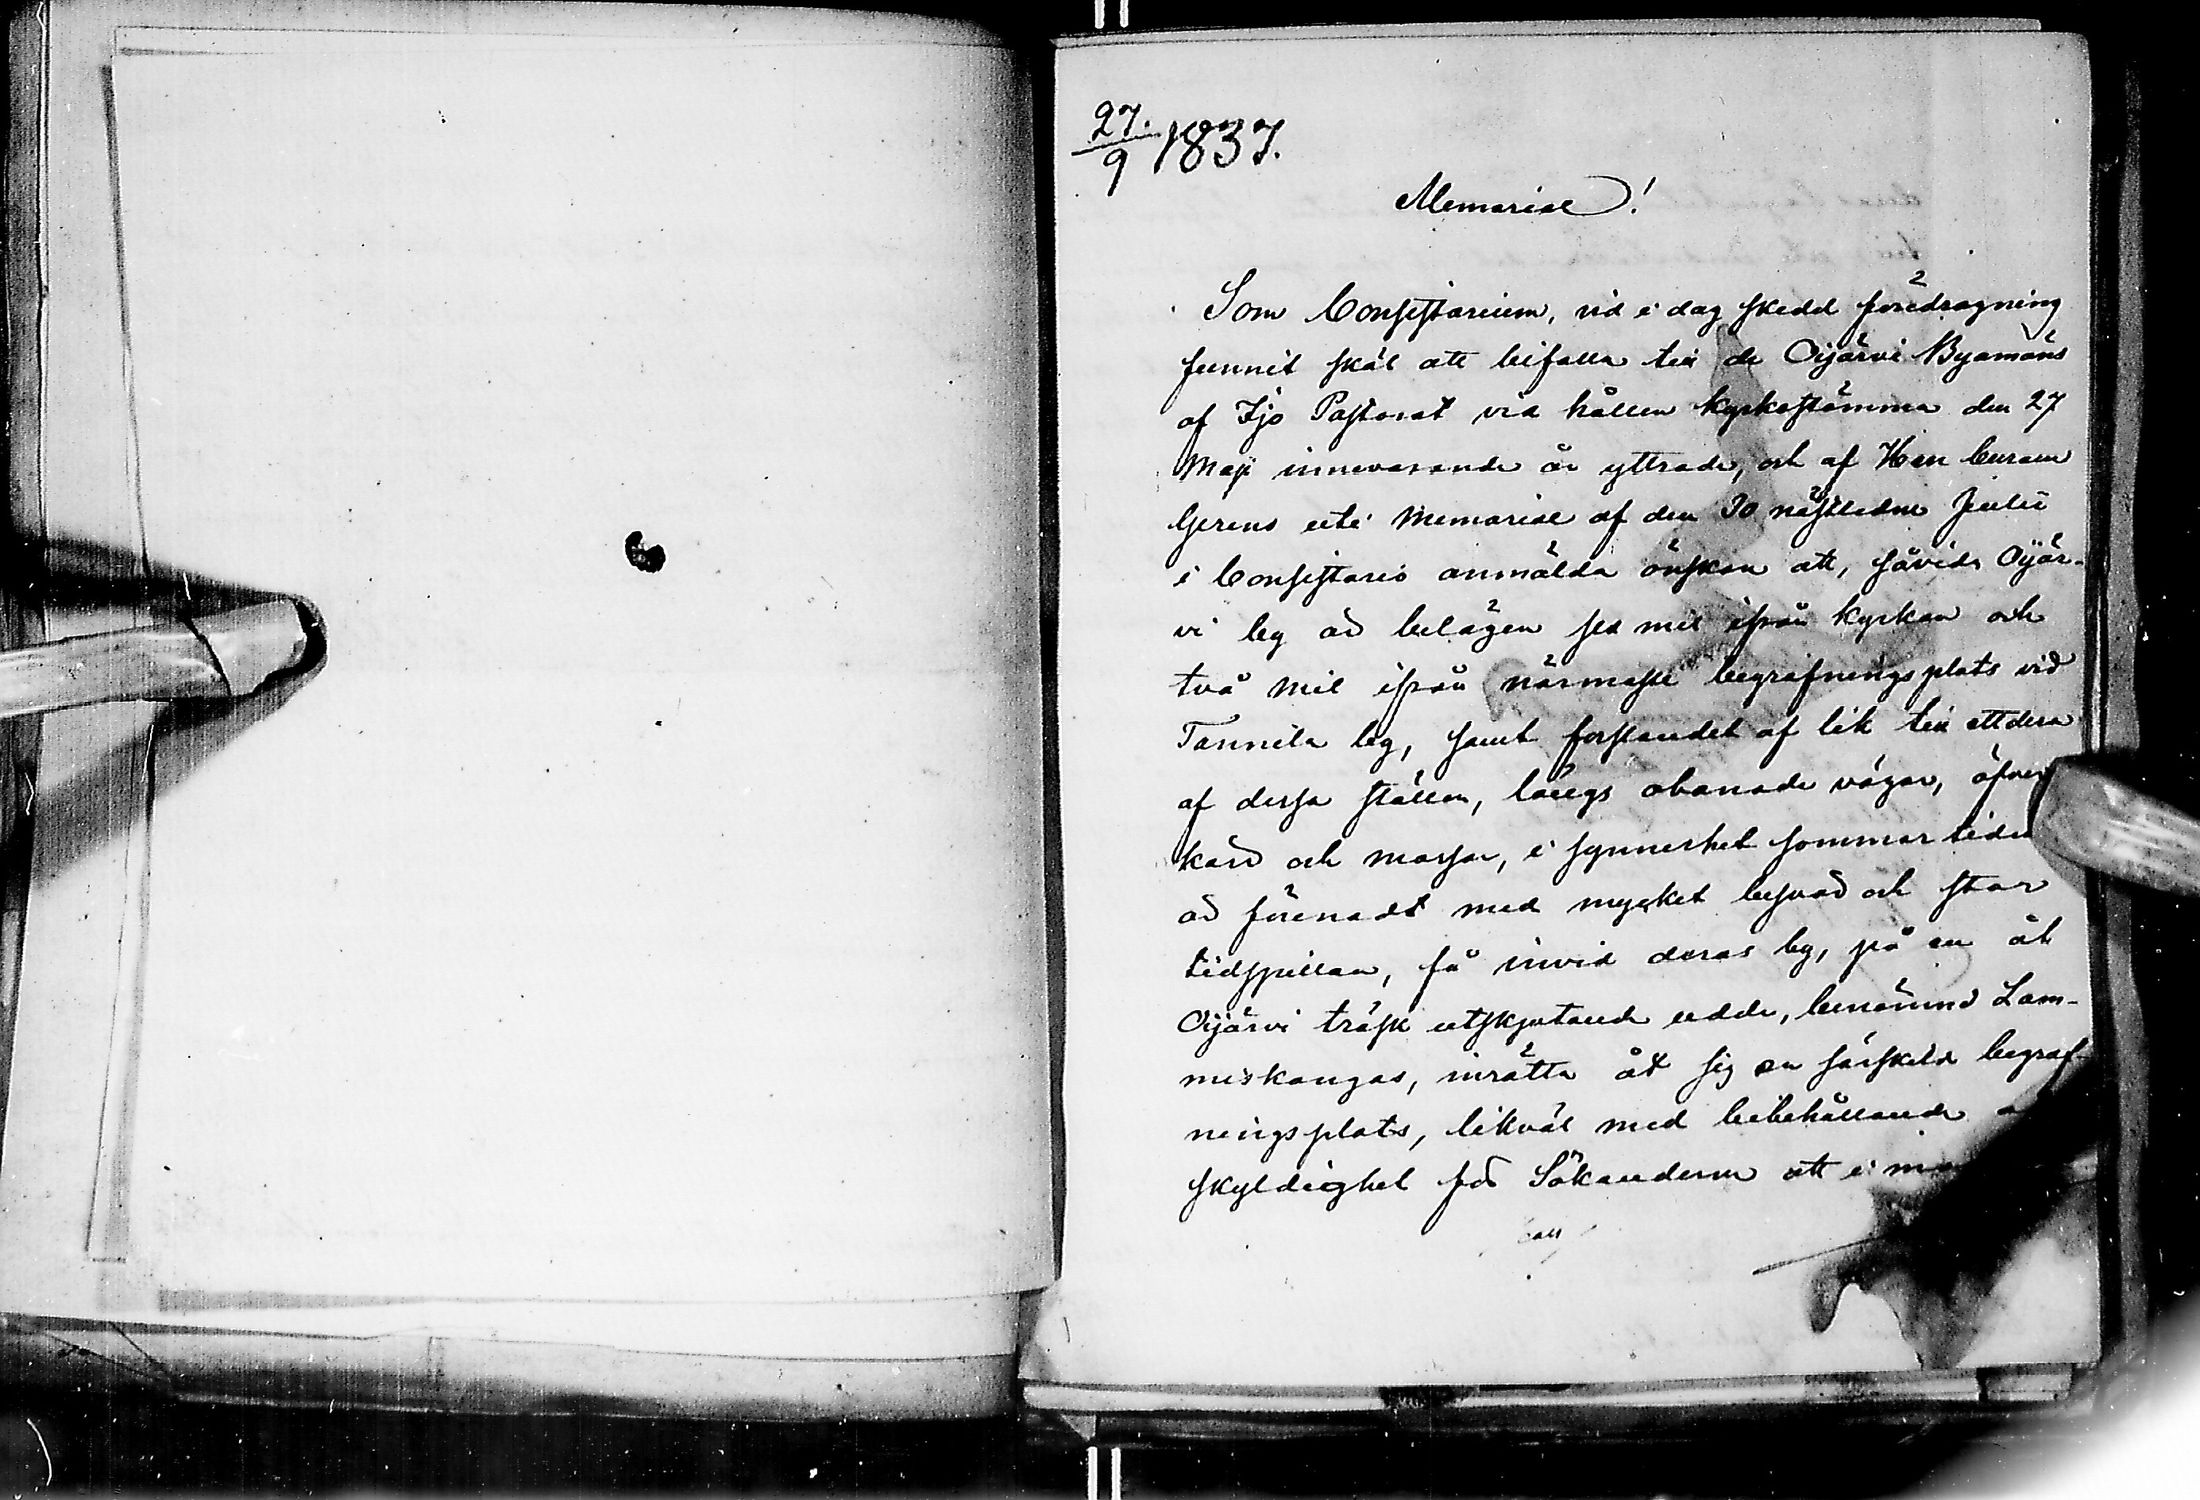 27./9 1837.
Memorial!
Som Consistorium, vid i dag skedd föredragning
funnit skäl att bifalla till de Oijärvi Byamäns
af Ijo Pastorat vid hållen kyrkostämma den 27
Maji innevarande år yttrade, och af Herr Curam
Gerens uti Memorial af den 30 nästledne Julii
i Consistorio anmälda önskan att, såvida Oijär-
vi by är belägen sex mil ifrån kyrkan och
två mil ifrån närmaste begrafningsplats vid
Tannila by, samt forslandet af lik till ettdera
af dessa ställen, längs obanade vägar, öfver
kärr och mossar, i synnerhet sommar tiden
är förenadt med mycket besvär och stor
tidspillan, få invid deras by, på en åt
Oijärvi träsk utskjutande udde, benämnd Lam-
miskangas, inrätta åt sig en särskild begraf-
ningsplats, likväl med bibehållande
skyldighet för Sökanderne att i
all